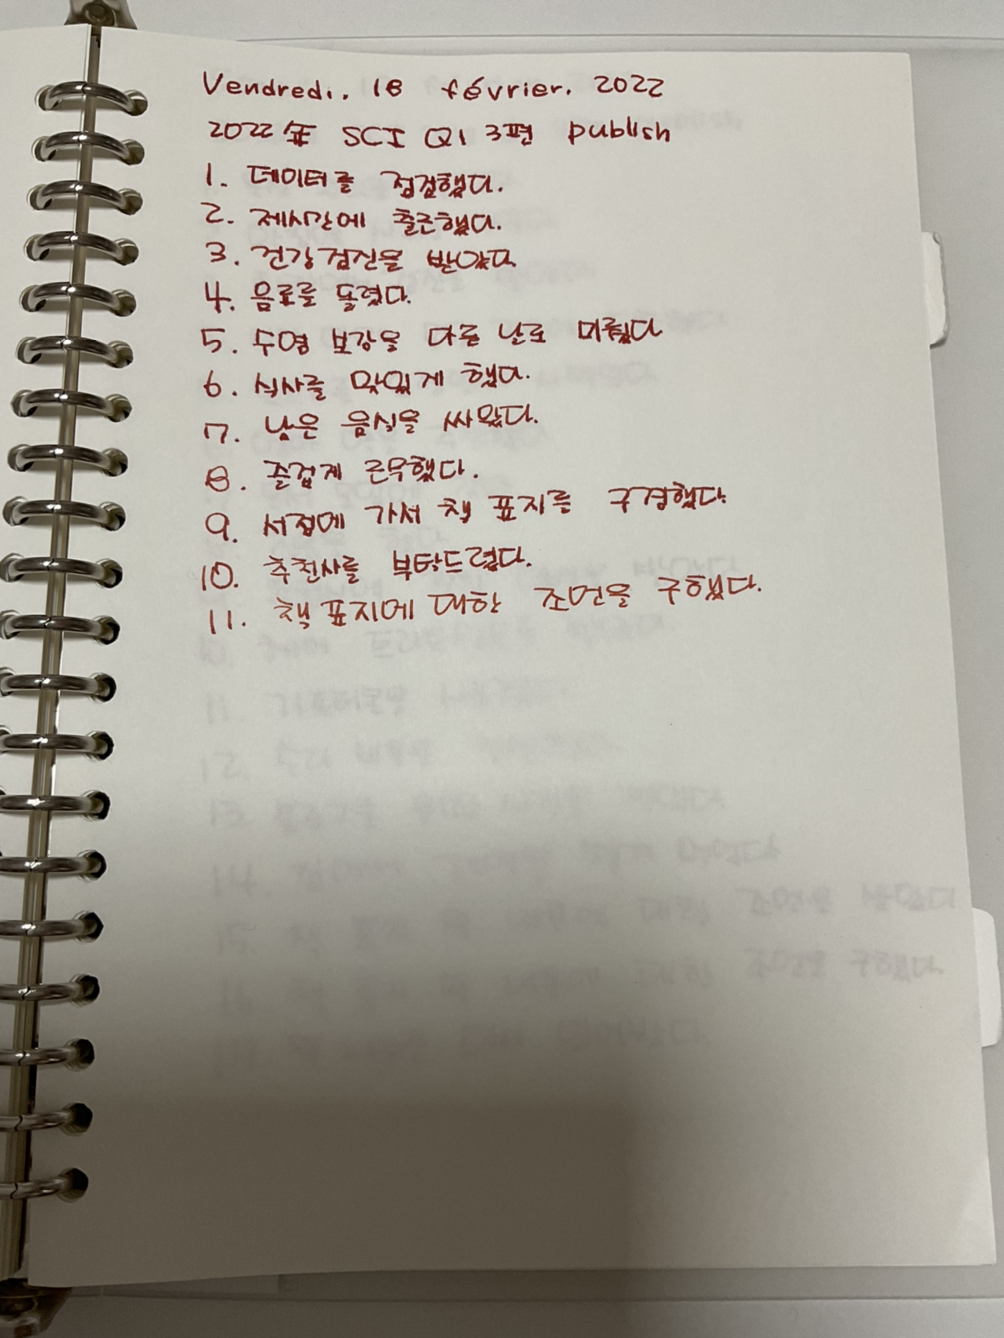 Vendredi. 18 février. 2022
2022 年 SCI Q1 3편 publish
1. 데이터를 점검했다.
2. 제시간에 출근했다.
3. 건강검진을 받았다.
4. 음료를 돌렸다.
5. 수영 보강을 다른 날로 미뤘다
6. 식사를 맛있게 했다.
7. 남은 음식을 싸왔다.
8. 즐겁게 근무했다.
9. 서점에 가서 책 표지를 구경했다.
10. 추천사를 부탁드렸다.
11. 책 표지에 대한 조언을 구했다.